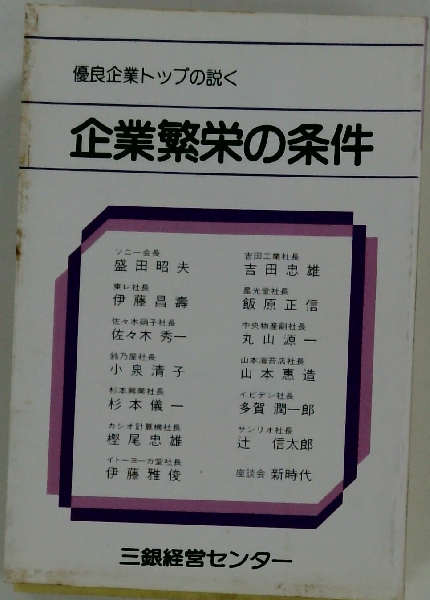 優良企業トップの説く
企業繁栄の条件
ソニー会長
盛田昭夫
東レ社長
伊藤昌壽
佐々木硝子社長
佐々木秀一
鈴乃屋社長
小泉清子
杉本興業社長
杉本儀一
カシオ計算機社長
樫尾忠雄
イトーヨーカ堂社長
伊藤雅俊
吉田工業社長
吉田忠雄
星光堂社長
飯原正信
中央物産副社長
丸山源一
山本海苔店社長
山本惠造
イビデン社長
多賀潤一郎
サンリオ社長
辻信太郎
座談会 新時代
三銀経営センター